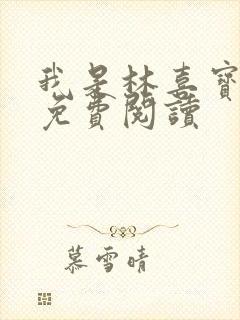 我是林喜寶
免費閱讀
慕雪晴